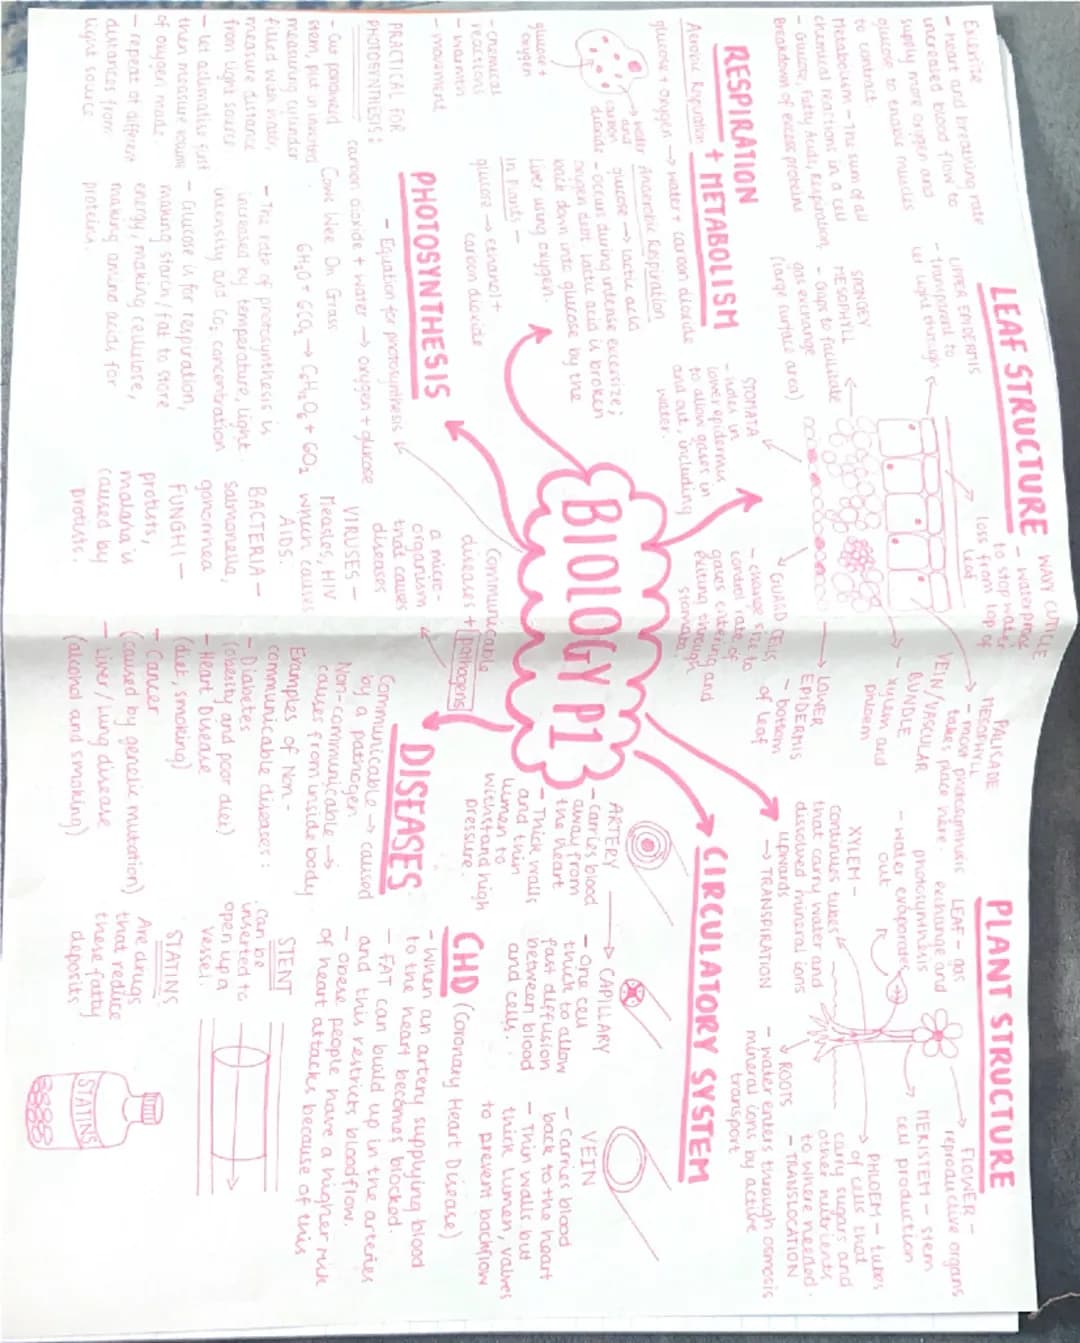 BIOLOGY P1
LEAF STRUCTURE
WAXY CUTICLE
- waterproof
to stop water
loss from top of
leaf
UPPER EPIDERMIS
- transparent to
let light through
PALISADE
MESOPHYLL
- most photosynthesis
takes place here.
SPONGEY
MESOPHYLL
- Gaps to facilitate
gas exchange
(large surface area)
VEIN/VASCULAR
BUNDLE
- xylem and
phloem
LOWER
EPIDERMIS
- bottom
of leaf
STOMATA
- holes in
lower epidermis
to allow gases in
and out, including
water.
GUARD CELLS
- change size to
control rate of
gases entering and
exiting through
stomata.
PLANT STRUCTURE
FLOWER -
reproductive organs
LEAF - gas
exchange and
photosynthesis
- water evaporates
out
MERISTEM - stem
cell production
XYLEM -
continuous tubes
that carry water and
dissolved mineral ions
upwards
→ TRANSPIRATION
PHLOEM - tubes
of cells that
carry sugars and
other nutrients
to where needed.
- TRANSLOCATION
ROOTS
- water enters through osmosis
mineral ions by active
transport
RESPIRATION
+ METABOLISM
Exercise
- heart and breathing rate
increased blood flow to
supply more oxygen and
glucose to enable muscles
to contract
Metabolism - The sum of all
chemical reactions in a cell
- Glucose, Fatty Acids, respiration,
Breakdown of excess proteins
Aerobic Respiration
glucose + oxygen → water + carbon dioxide
glucose +
oxygen
water
and
carbon
dioxide
- chemical
reactions
- warmth
- movement
Anaerobic Respiration
glucose → lactic acid
- occurs during intense excersize;
oxygen debt lactic acid is broken
back down into glucose by the
liver using oxygen.
in plants -
glucose → ethanol +
carbon dioxide
PHOTOSYNTHESIS
- Equation for photosynthesis
carbon dioxide + water → oxygen + glucose
Come Wee On Grass
6H₂O + 6CO₂ → C₆H₁₂O₆ + 6O₂
- The rate of photosynthesis is
increased by temperature, light
intensity and CO₂ concentration
- Glucose is for respiration,
making starch / fat to store
energy, making cellulose,
making amino acids for
proteins.
PRACTICAL FOR
PHOTOSYNTHESIS:
- Cut pondweed
stem, put in inverted
measuring cylinder
filled with water,
measure distance
from light source
- let aclimatise first
then measure volume
of oxygen made.
- repeat at different
distances from
light source
CIRCULATORY SYSTEM
ARTERY
- carries blood
away from
the heart
- Thick walls
and thin
lumen to
withstand high
pressure.
→ CAPILLARY
- One cell
thick to allow
fast diffusion
between blood
and cells.
VEIN
- Carries blood
back to the heart
- Thin walls but
thick lumen, valves
to prevent backflow
DISEASES
Communicable
diseases + Pathogens
a micro-
organism
that causes
diseases
VIRUSES -
Measles, HIV
which causes
AIDS.
BACTERIA -
salmonella,
gonorrhea
FUNGHI -
protists,
malaria is
caused by
protists.
Communicable → caused
by a pathogen
Non-communicable →
causes from inside body
Examples of Non-
communicable diseases:
- Diabetes
(obesity and poor diet)
- Heart Disease
(diet, smoking)
- Cancer
(caused by genetic mutation)
- Liver/Lung disease
(alcohol and smoking)
CHD (Coronary Heart Disease)
- When an artery supplying blood
to the heart becomes blocked.
- FAT can build up in the arteries
and this restricts bloodflow.
- Obese people have a higher risk
of heart attacks because of this
STENT
Can be
inserted to
open up a
vessel.
STATINS
Are drugs
that reduce
these fatty
deposits.
STATINS